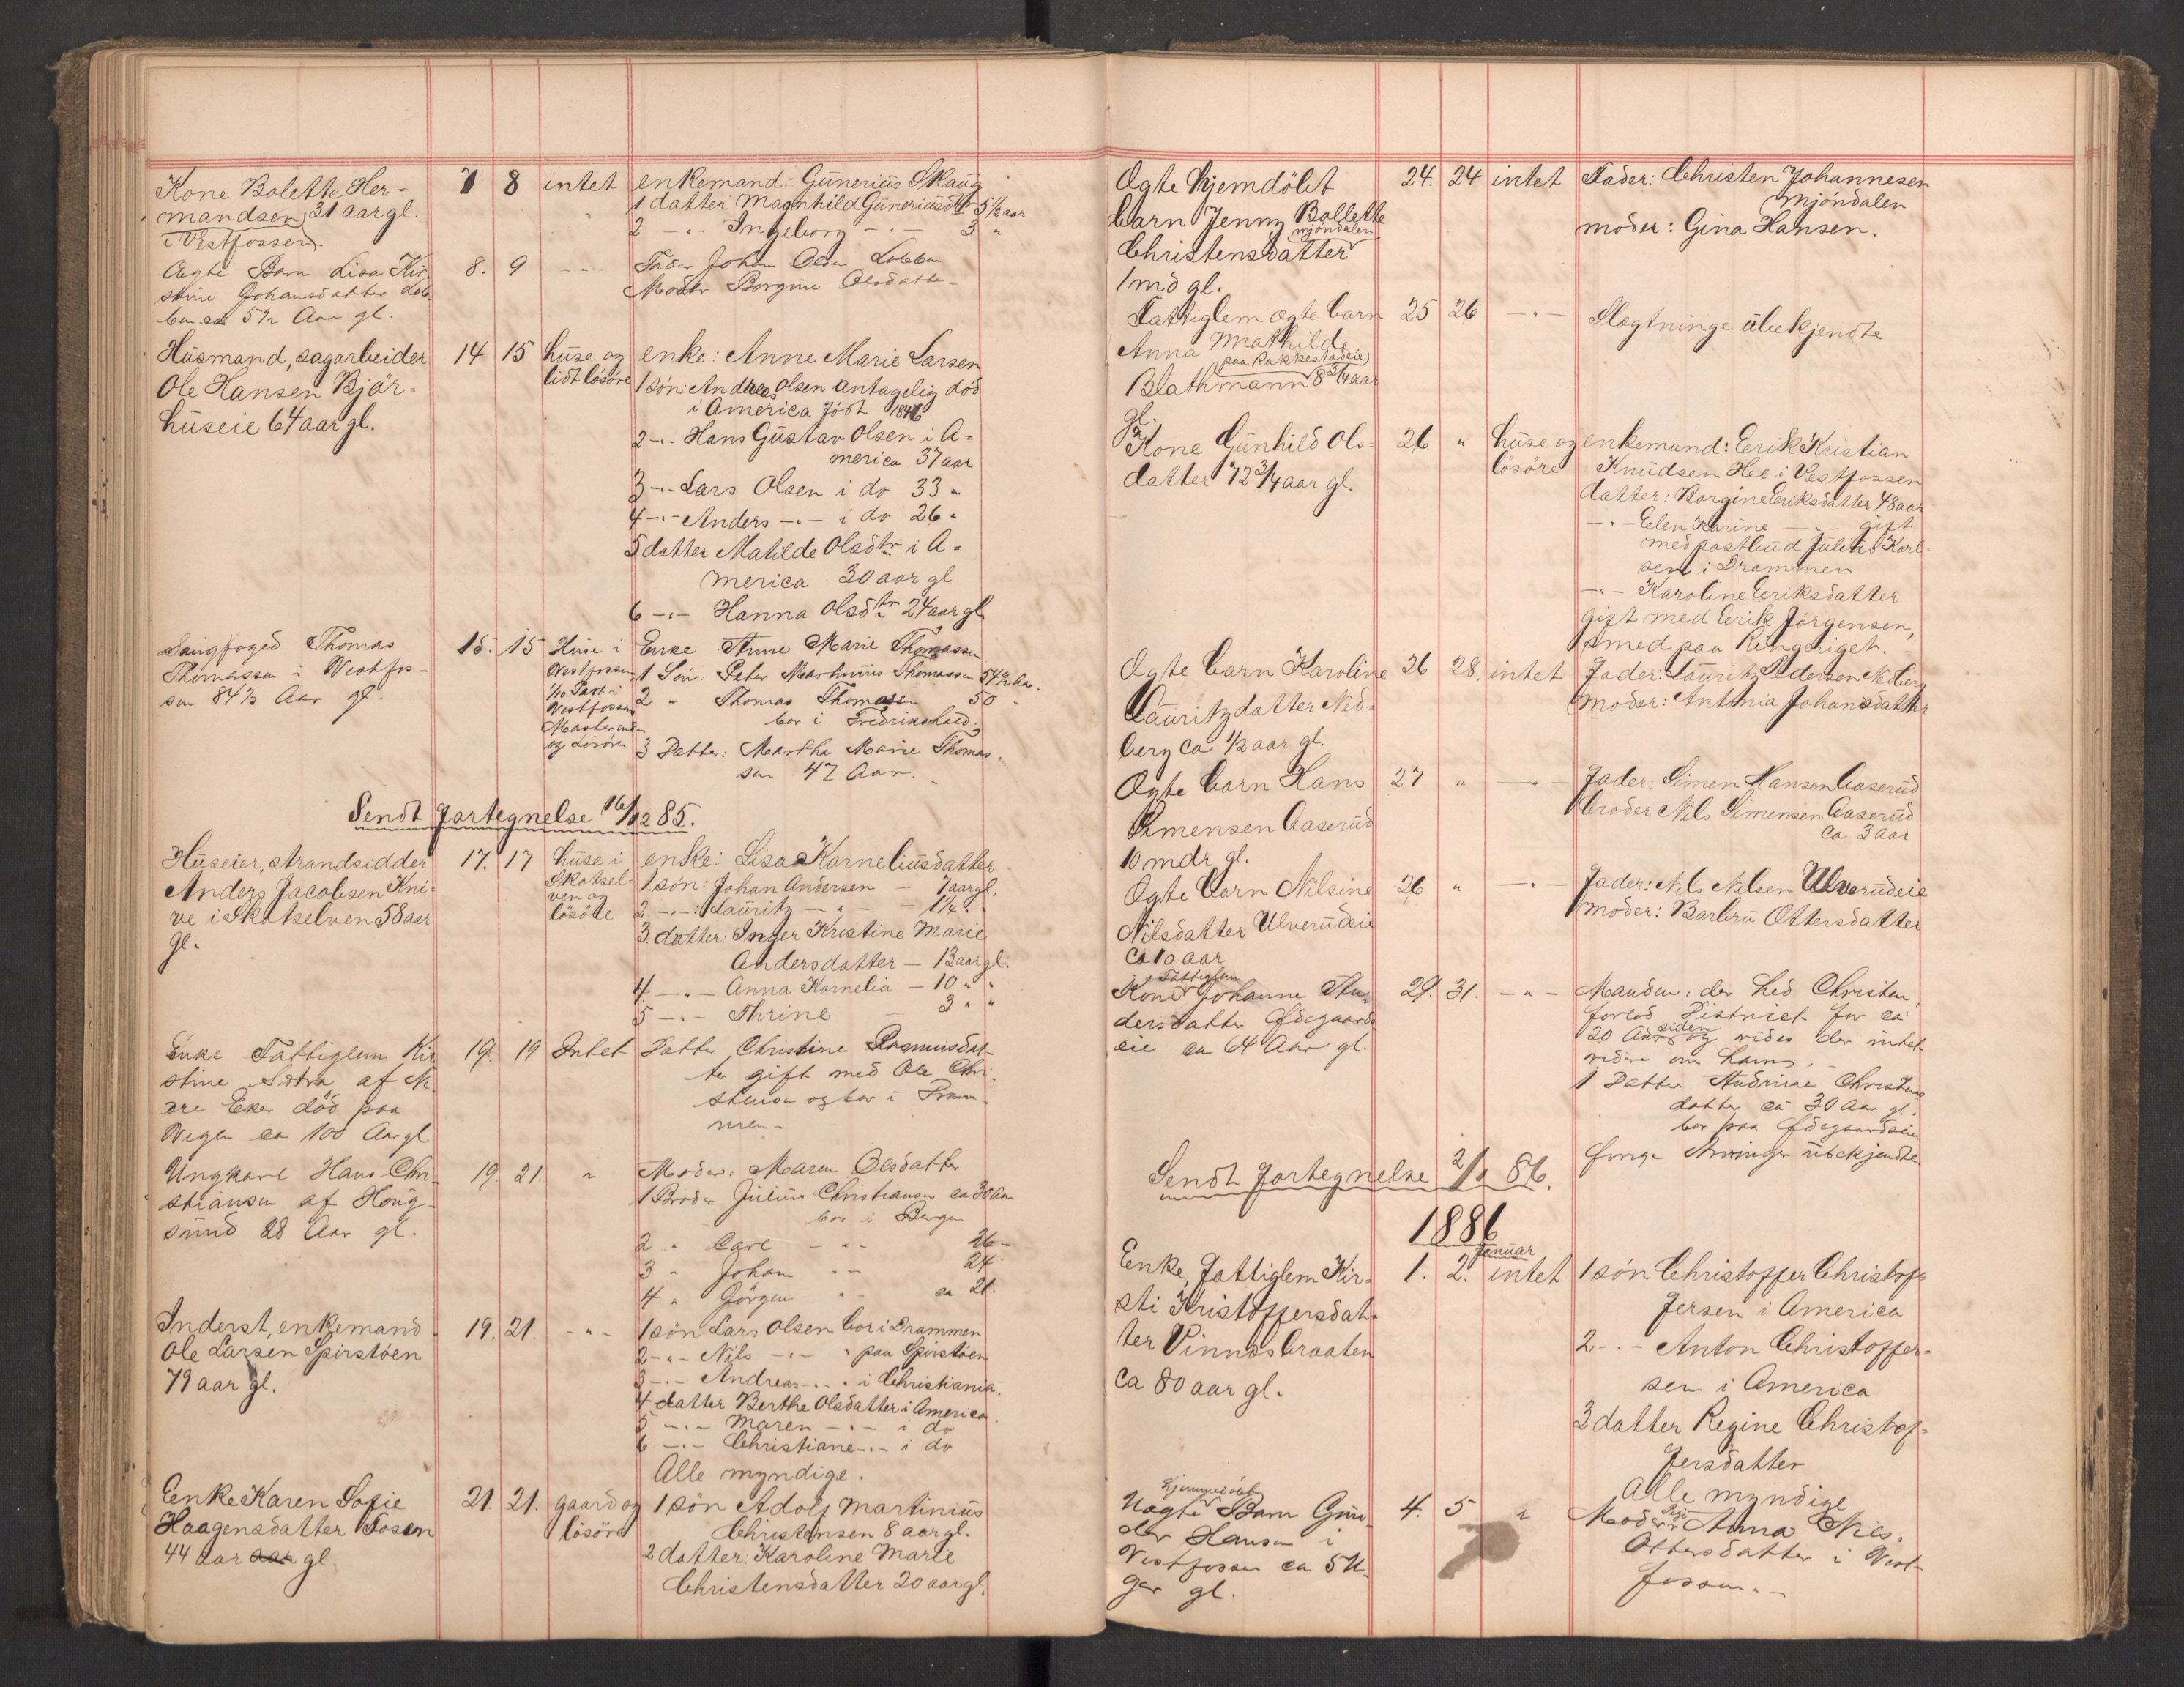 Kone Bolette Her-  7  8  intet  enkemand: Gunerius Skaug
mandsen, 31 aar gl.  1 datter Magnhild Guneriusdtr 5½ aar
i Vestfossen.  2 -"- Ingeborg -"- 3 "
Ægte Barn Lisa Kir-  8.  9  -"-  Fader Johan Olsen Lobben
stine Johansdatter Lob-  Moder Borgine Olsdatter
ben ca 5½ Aar gl.
Husmand, sagarbeider  14  15  huse og  enke: Anne Marie Larsen
Ole Hansen Bjør-  lidt løsøre  1 søn: Andreas Olsen antagelig død
huseie 64 aar gl.  i America født 1846
2 -"- Hans Gustav Olsen i A-
merica 37 aar
3 -"- Lars Olsen i do 33 "
4 -"- Anders -"- i do 26 "
5 datter Matilde Olsdtr i A-
merica 30 aar gl
6 -"- Hanna Olsdtr 24 aar gl
Thomas  15.  15  Huse i  Enke Anne Marie Thomassen
Thomassen i Vestfos-  Vestfossen  1 Søn: Peter Martinius Thomassen
sen 84½ Aar gl.  1/10 Part i  2 " Thomas Thomassen 50 "
Vestfossen  bor i Fredrikshald.
og Løsøre  3 Datter: Martha Marie Thomas-
sen 47 Aar.
Sendt fortegnelse 16/12 85.
Huseier, strandsidder  17.  17  huse i  enke: Lisa Korneliusdatter
Anders Jacobsen Kni-  Skotsel-  1. søn: Johan Andersen - 7 aar gl.
ve i Skotselven 58 aar  ven og  2. -"-: Lauritz -"- - 1¼ " "
gl.  løsøre  3. datter: Inger Kristine Marie
Andersdatter - 13 aar gl.
4. -"- Anna Kornelia - 10 " "
5 -"- Thrine - 3 " "
Enke Fattiglem Kir-  19.  19  Intet  Datter Christine Rasmusdat-
stine af Ne-  ter gift med Ole Chri-
dre Eker død paa  stensen og bor i Dram-
Vegen ca 100 Aar gl  men -
Ungkarl Hans Chri-  19.  21.  "  Moder: Maren Olsdatter
stiansen af Houg-  1 Broder Julius Christiansen ca 30 Aar
sund 28 Aar gl.  bor i Bergen
2 " Carl -"- 26 -
3 " Johan -"- 24
4 " Jörgen " ca 21.
Inderst, enkemand  19.  21.  -"-  1 søn Lars Olsen bor i Drammen
Ole Larsen Spirstøen  2 -"- Nils -"- " paa Spirstøen
79 aar gl.  3 -"- Andreas -"- " i Christiania.
4 datter Berthe Olsdatter i America
5 -"- Maren -"- i do
6 -"- Christiane -"- i do
Alle myndige.
Enke Karen Sofie  21.  21.  gaard og  1 søn Adolf Martinius
Haagensdatter Fosen  løsøre  Christensen 8 aar gl.
44 aar aar gl.  2 datter: Karoline Marie
Christensdatter 20 aar gl.
Ægte hjemdøbt  24.  24  intet  Fader: Christen Johannesen
barn Jenny Bollette  Mjøndalen
Mjøndalen  moder: Gina Hansen.
Christensdatter
1 md gl.
Fattiglem ægte barn  25  26  -"-  Slægtninge ubekjendte
Anna Mathilde
paa Rakkestadeie
Blathmann 8¾ aar
gl.
Kone Gunhild Ols-  26  "  huse og  enkemand: Eerik Kristian
datter 72¾ aar gl.  løsøre  Knudsen Hee i Vestfossen
datter: Borgine Eeriksdatter 48 aar
-"- Eelen Karine -"- gift
med postbud Julius Karl-
sen i Drammen
-"- Karoline Eeriksdatter
gift med Eerik Jørgensen,
smed paa Ringeriget.
Ægte barn Karoline  26  28.  intet  Fader: Lauritz Pedersen Nedberg
Lauritzdatter Ned-  Moder: Antonia Johansdatter
berg ca ½ aar gl.
Ægte barn Hans  27  "  -"-  Fader: Simen Hansen Aaserud
Simensen Aaserud  broder Nils Simensen Aaserud
ca 3 aar
10 mdr gl.
Ægte barn Nilsine  26  "  -"-  Fader: Nils Nilsen Ulverudeie
Nilsdatter Ulverudeie  moder: Barbru Ottersdatter
ca 10 aar
Fattiglem
Kone Johanne An-  29.  31.  -"-  Manden, der hed Christen,
dersdatter Ødegaards-  forlod District for ca
eie ca 64 Aar gl.  20 Aar siden og vides der intet
videre om ham.
1 Datter Andrine Christens
datter ca 30 Aar gl.
bor paa Ødegaardseie
Arvinger ubekjendte
Sendt fortegnelse 2/1 86.
1886
Januar
Enke, Fattiglem Kir-  1.  2.  intet  1 søn Christoffer Christof-
sti Kristoffersdat-  fersen i America
ter Vinnæsbraaten  2 -"- Anton Christoffer-
ca 80 aar gl.  sen i America
3 datter Regine Christof-
fersdatter
Alle myndige
hjemmedøbt
Uægte Barn Gun-  4.  5  "  Moder Pige Anna Nils.
der Hansen i  Ottersdatter i Vest-
Vestfossen ca 5 U-  fossen. -
ger gl.